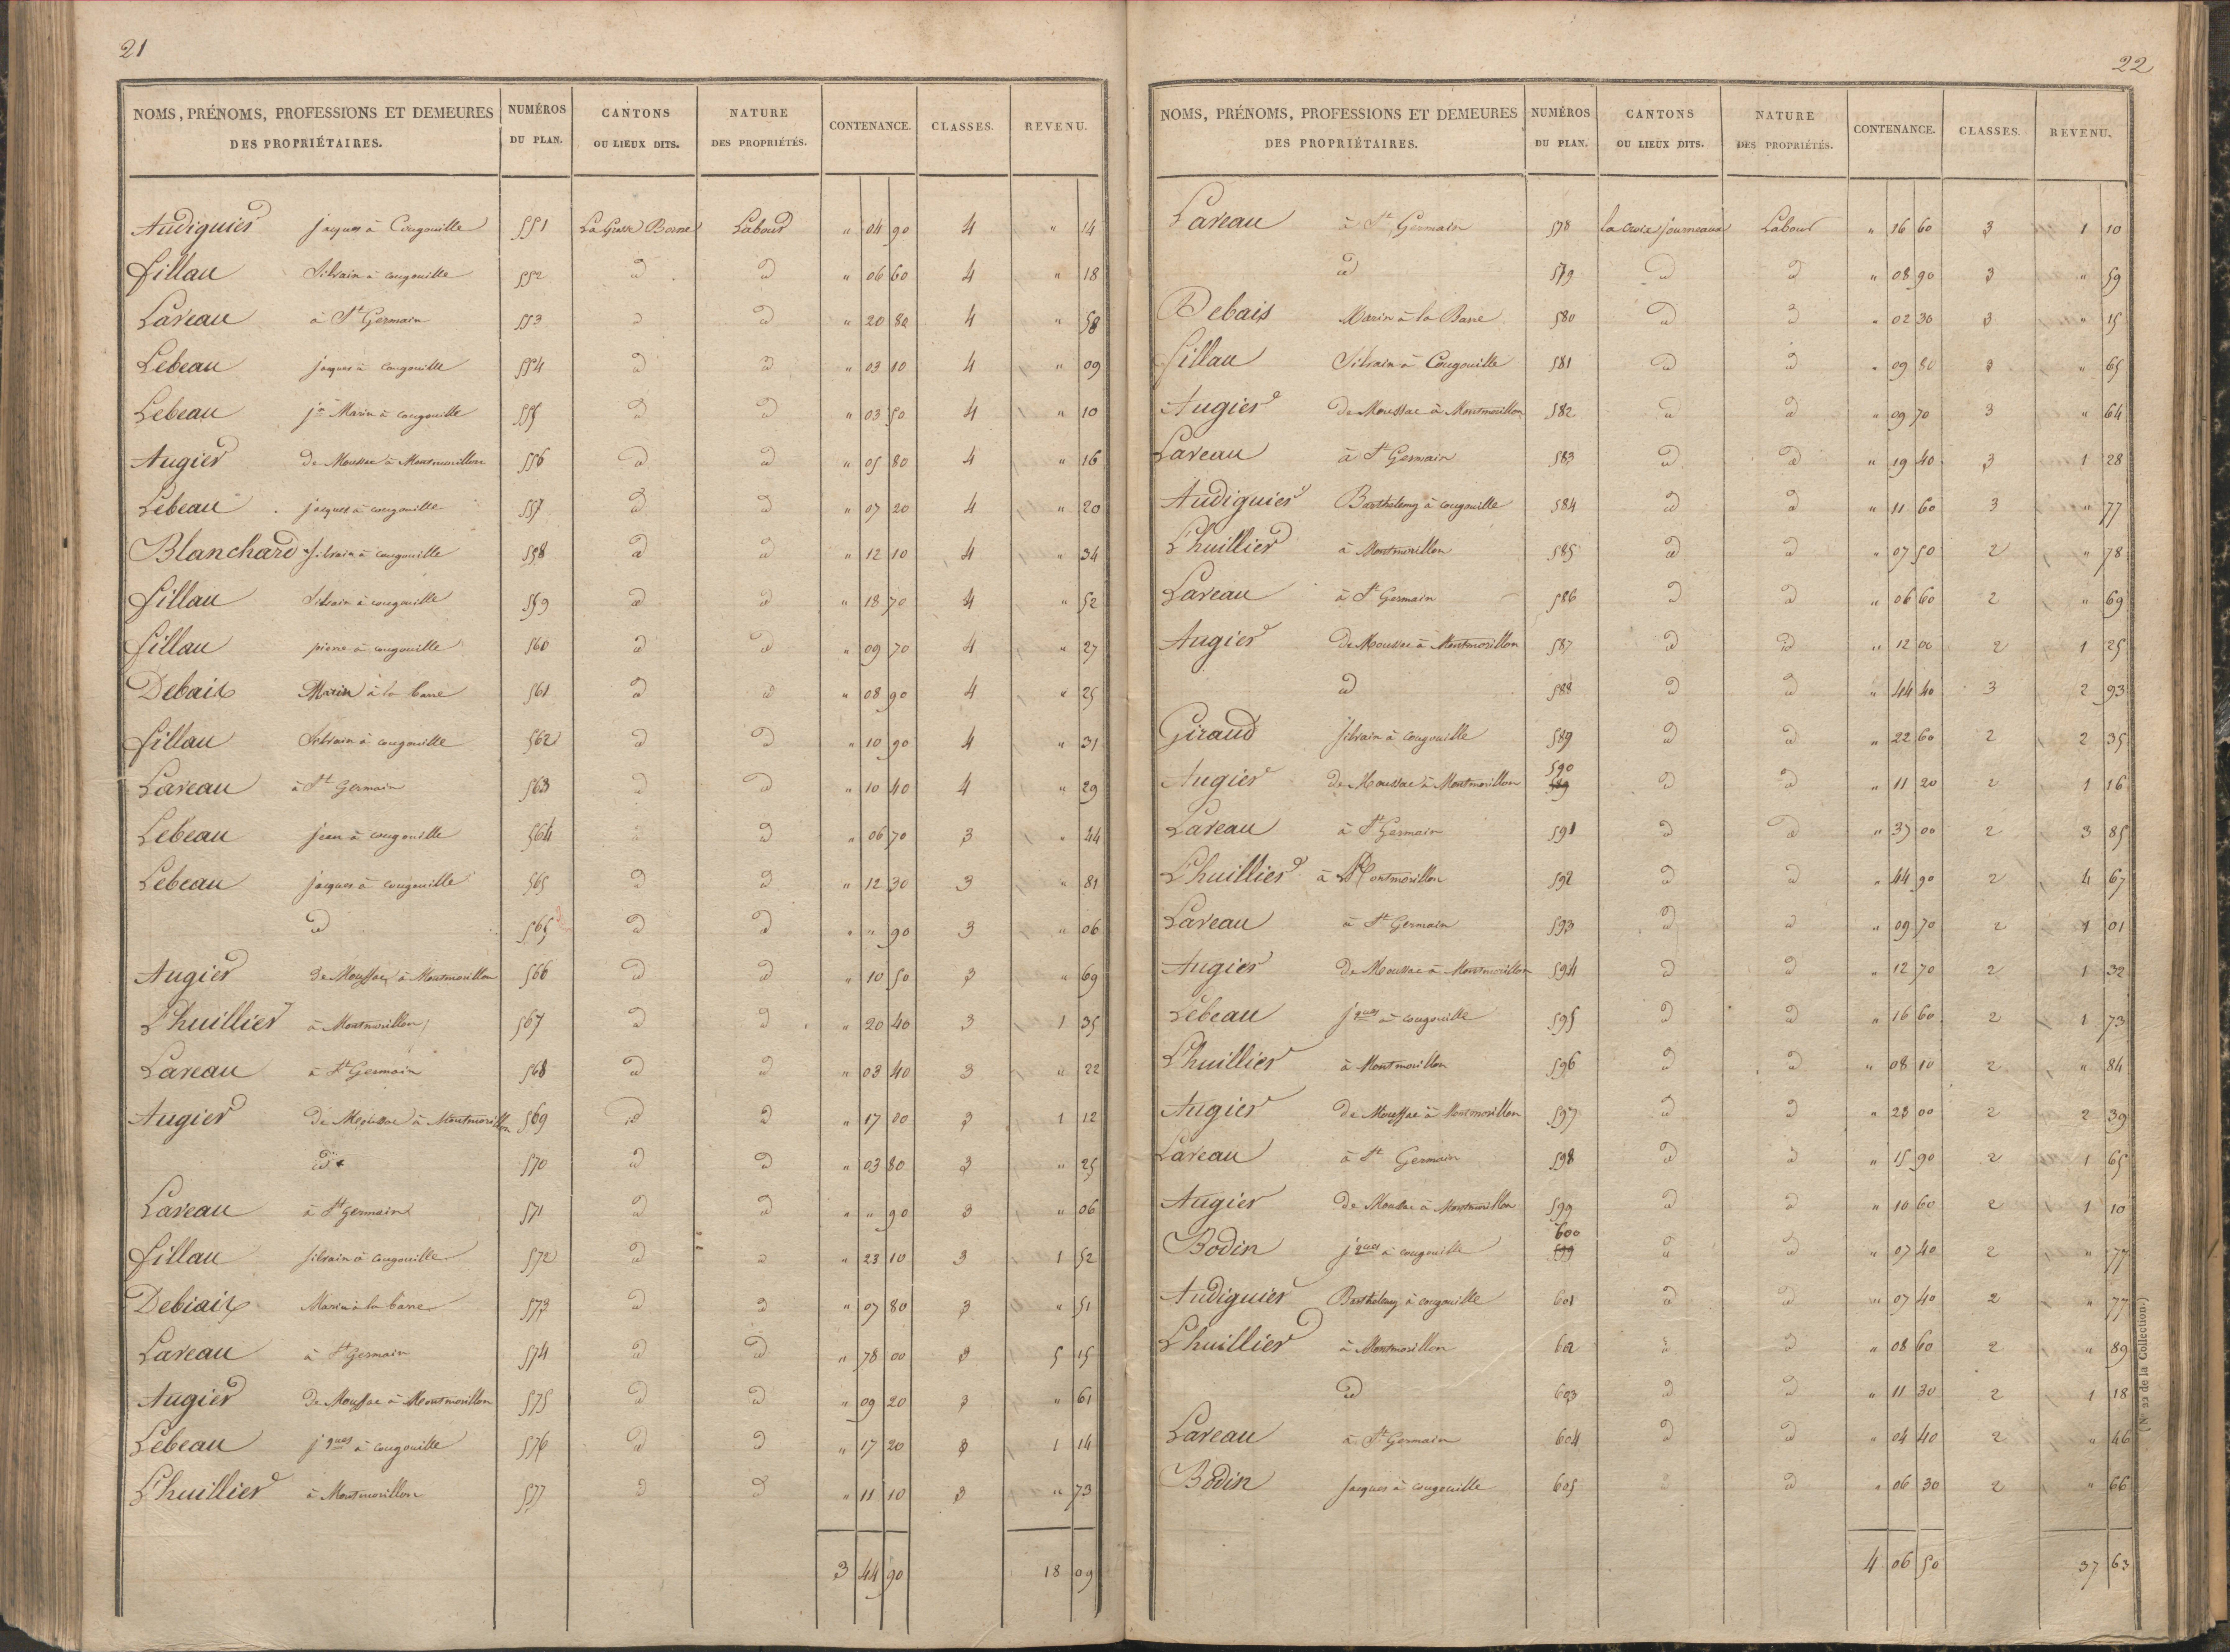 21
NOMS, PRÉNOMS, PROFESSIONS ET DEMEURES DES PROPRIÉTAIRES. NUMÉROS DU PLAN. CANTONS OU LIEUX DITS. NATURE DES PROPRIÉTÉS. CONTENANCE. CLASSES. REVENU.
Audiguier jacques à Cougouille 551 La Grosse Borne Labour " 04 90 4 " 14
fillau Silvain à cougouille 552 id id " 06 60 4 " 18
Laveau à St Germain 553 id id " 20 80 4 " 58
Lebeau jacques à cougouille 554 id id " 03 10 4 " 09
Lebeau Marin à cougouille 555 id id " 03 50 4 " 10
Augier de Moussac à Montmorillon 556 id id " 05 80 4 " 16
Lebeau jacques à cougouille 557 id id " 07 20 4 " 20
Blanchard Silvain à cougouille 558 id id " 12 10 4 " 34
fillau Silvain à cougouille 559 id id " 18 70 4 " 52
fillau pierre à cougouille 560 id id " 09 70 4 " 27
Debaix Marin à la barre 561 id id " 08 90 4 " 25
fillau Silvain à cougouille 562 id id " 10 90 4 " 31
Laveau à St Germain 563 id id " 10 40 4 " 29
Lebeau jean à cougouille 564 id id " 06 70 3 " 44
Lebeau jacques à cougouille 565 id id " 12 30 3 " 81
id 565 id id " " 90 3 " 06
Augier de Moussac à Montmorillon 566 id id " 10 50 3 " 69
Lhuillier à Montmorillon 567 id id " 20 40 3 1 35
Laveau à St Germain 568 id id " 03 40 3 " 22
Augier de Moussac à Montmorillon 569 id id " 17 00 3 1 12
id 570 id id " 03 80 3 " 25
Laveau à St germain 571 id id " " 90 3 " 06
fillau silvain à cougouille 572 id id " 23 10 3 1 52
Debiaix Marin à la barre 573 id id " 07 80 3 " 51
Laveau à St Germain 574 id id " 78 00 3 5 15
Augier de Moussac à Montmorillon 575 id id " 09 20 3 " 61
Lebeau jques à cougouille 576 id id " 17 20 3 1 14
Lhuillier à Montmorillon 577 id id " 11 10 3 " 73
3 44 90 18 09
22
NOMS, PRÉNOMS, PROFESSIONS ET DEMEURES DES PROPRIÉTAIRES. NUMÉROS DU PLAN. CANTONS OU LIEUX DITS. NATURE DES PROPRIÉTÉS. CONTENANCE. CLASSES. REVENU.
Laveau à St Germain 578 la croix journeaux Labour " 16 60 3 1 10
id 579 id id " 08 90 3 " 59
Debais Marin à la Barre 580 id id " 02 30 3 " 15
fillau Silvain à Cougouille 581 id id " 09 80 3 " 65
Augier de Moussac à Montmorillon 582 id id " 09 70 3 " 64
Laveau à St Germain 583 id id " 19 40 3 1 28
Audiguier Barthelemy à cougouille 584 id id " 11 60 3 " 77
Lhuillier à Montmorillon 585 id id " 07 50 2 " 78
Laveau à St Germain 586 id id " 06 60 2 " 69
Augier de Moussac à Montmorillon 587 id id " 12 00 2 1 25
id 588 id id " 44 40 3 2 93
Giraud silvain à cougouille 589 id id " 22 60 2 2 35
Augier de Moussac à Montmorillon 590 589 id id " 11 20 2 1 16
Laveau à St Germain 591 id id " 37 00 2 3 85
Lhuillier à Montmorillon 592 id id " 44 90 2 4 67
Laveau à St Germain 593 id id " 09 70 2 1 01
Augier de Moussac à Montmorillon 594 id id " 12 70 2 1 32
Lebeau jques à cougouille 595 id id " 16 60 2 1 73
Lhuillier à Montmorillon 596 id id " 08 10 2 " 84
Augier de Moussac à Montmorillon 597 id id " 23 00 2 2 39
Laveau à St Germain 598 id id " 15 90 2 1 65
Augier de Moussac à Montmorillon 599 id id " 10 60 2 1 10
Bodin jques à cougouille 600 599 id id " 07 40 2 " 77
Audiguier Barthelemy à cougouille 601 id id " 07 40 2 " 77
Lhuillier à Montmorillon 602 id id " 08 60 2 " 89
id 603 id id " 11 30 2 1 18
Laveau à St Germain 604 id id " 04 40 2 " 46
Bodin Jacques à cougouille 605 id id " 06 30 2 " 66
4 06 50 37 63
(No 22 de la Collection.)